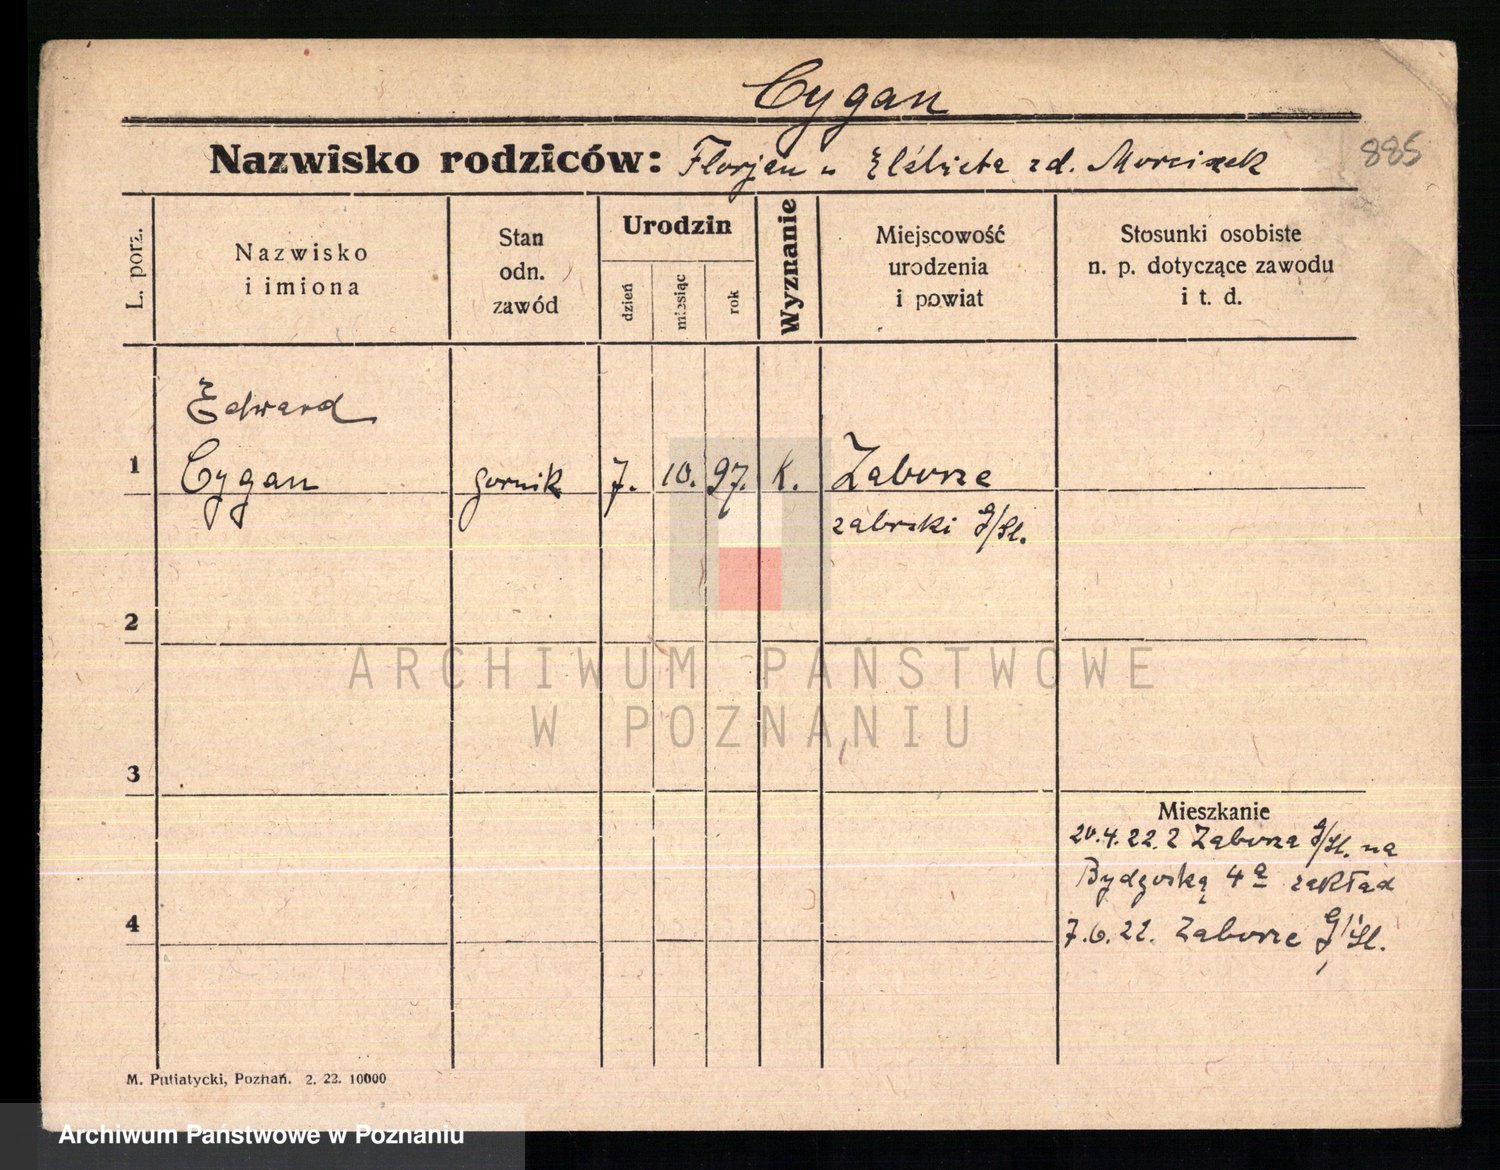 Cygan
Nazwisko rodziców: Florjan u Elżbieta zd. Morcinek
885
L. porz.
Nazwisko
i imiona
Stan
odn.
zawód
Urodzin
dzień
miesiąc
rok
Wyznanie
Miejscowość
urodzenia
i powiat
Stosunki osobiste
n. p. dotyczące zawodu
i t. d.
1
Edward
Cygan
gornik
7.
10.
97.
k.
Zaborze
zabrski G/Sl.
2
ARCHIWUM PAŃSTWOWE
W POZNANIU
3
Mieszkanie
20.4.22. z Zaborza G/Sl. na
Bydgoską 4a zakład
4
7.6.22. Zaborze G/Sl.
M. Putiatycki, Poznań. 2. 22. 10000
Archiwum Państwowe w Poznaniu